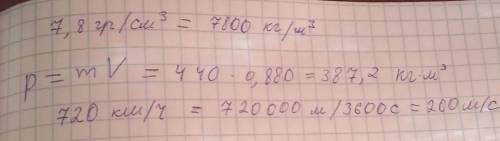 7,8 гр/см³ = 7800 кг/м³
p = mV = 440 · 0,880 = 387,2 кг·м³
720 км/ч = 720000 м/3600с = 200 м/с